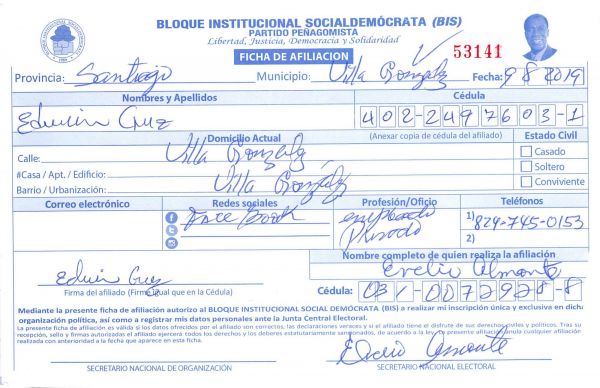 BLOQUE INSTITUCIONAL SOCIALDEMÓCRATA (BIS)
PARTIDO PEÑAGOMISTA
Libertad, Justicia, Democracia y Solidaridad
FICHA DE AFILIACION
53141
Provincia: Santiago Municipio: Villa Gonzalez Fecha: 9 8 2019
Nombres y Apellidos Cédula
Edwin Cruz 402-2497603-1
Domicilio Actual (Anexar copia de cédula del afiliado) Estado Civil
Calle: Villa Gonzalez Casado
#Casa / Apt. / Edificio: Soltero
Barrio / Urbanización: Villa González Conviviente
Correo electrónico Redes sociales Profesión/Oficio Teléfonos
Face Book empleado 1) 829-745-0153
Privado 2)
Nombre completo de quien realiza la afiliación
Edwin Cruz Evelio Almonte
Firma del afiliado (Firme igual que en la Cédula) Cédula: 031-0072928-8
Mediante la presente ficha de afiliación autorizo al BLOQUE INSTITUCIONAL SOCIAL DEMÓCRATA (BIS) a realizar mi inscripción única y exclusiva en dicha
organización política, así como a registrar mis datos personales ante la Junta Central Electoral.
La presente ficha de afiliación es válida si los datos ofrecidos por el afiliado son correctos, las declaraciones veraces y si el afiliado tiene el disfrute de sus derechos civiles y políticos. Tras su
recepción, sello y firmas autorizadas el afiliado ejercerá todos los derechos y los deberes estatutariamente sancionados, de acuerdo a la ley. O presente afiliación anula cualquier afiliación
realizada con anterioridad a la fecha que aparece en esta ficha.
Evelio Almonte
SECRETARIO NACIONAL DE ORGANIZACIÓN SECRETARIO NACIONAL ELECTORAL